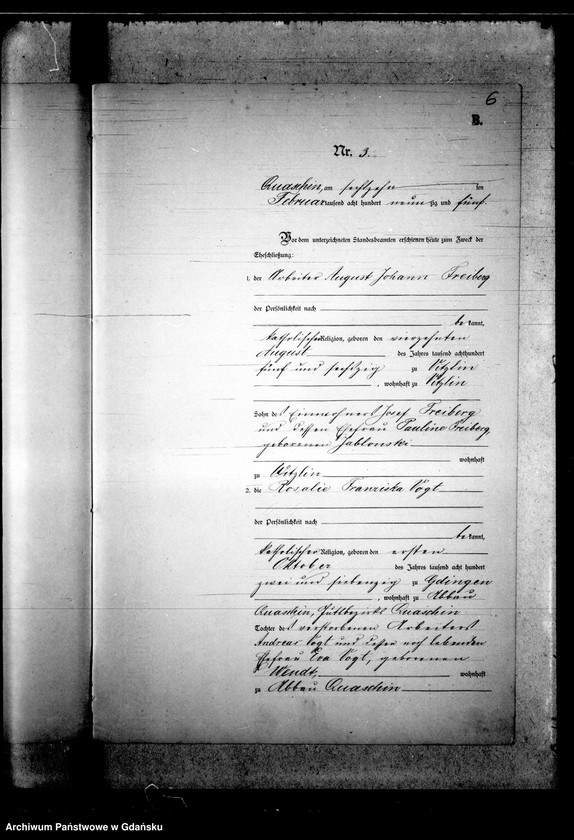 6
B.
Nr. 3.
Quaschin, am sechszehn ten
Februar tausend acht hundert neun zig und fünf.
Vor dem unterzeichneten Standesbeamten erschienen heute zum Zweck der
Eheschließung:
1. der Arbeiter August Johann Freiberg
der Persönlichkeit nach
be kannt,
katholischer Religion, geboren den vierzehnten
August des Jahres tausend achthundert
fünf und sechszig zu Witzlin
, wohnhaft zu Witzlin
Sohn des Einwohners Josef Freiberg
und dessen Ehefrau Pauline Freiberg
geborenen Jablonski
wohnhaft
zu Witzlin
2. die Rosalie Franziska Vogt
der Persönlichkeit nach
be kannt,
katholischer Religion, geboren den ersten
Oktober des Jahres tausend acht hundert
zwei und siebenzig zu Gdingen
, wohnhaft zu Abbau
Quaschin, Gutsbezirks Quaschin
Tochter des verstorbenen Arbeiters
Andreas Vogt und dessen noch lebenden
Ehefrau Eva Vogt, geborenen
Wendt, wohnhaft
zu Abbau Quaschin
Archiwum Państwowe w Gdańsku